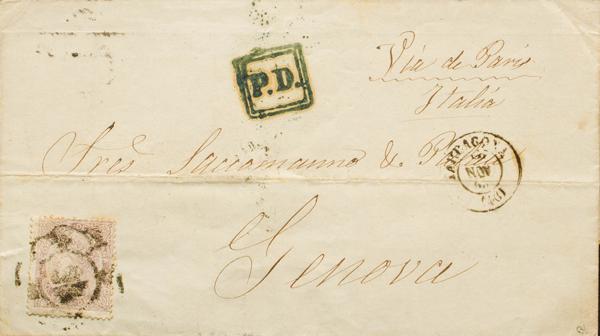 P.D.
Via de Paris
Italia
Sres Saccomanno &
TARRAGONA
NOV
Genova